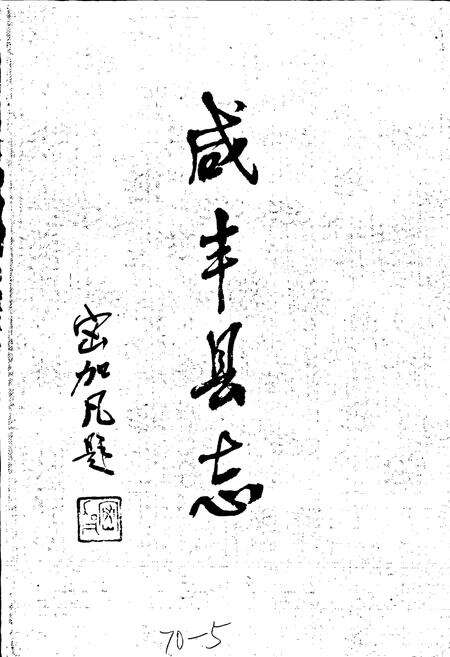 咸丰县志
密加凡题
70-5